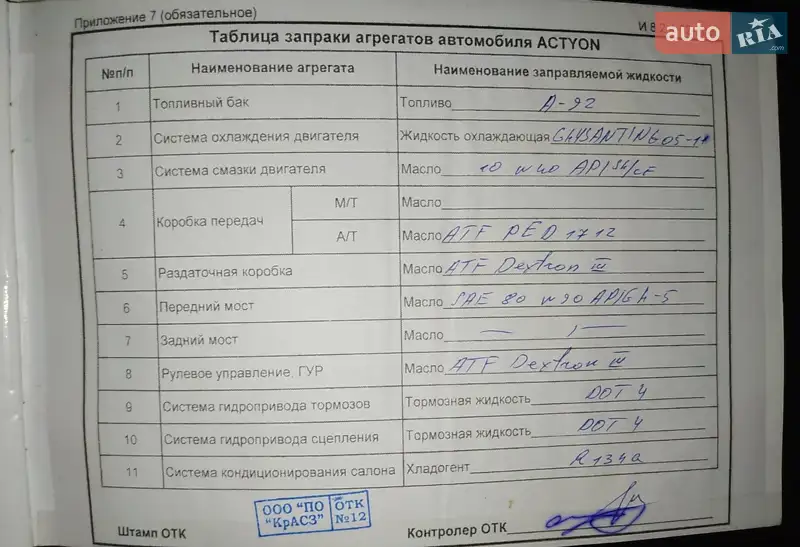 Приложение 7 (обязательное)
И 8
auto RIA .com
Таблица запраки агрегатов автомобиля ACTYON
№п/п Наименование агрегата Наименование заправляемой жидкости
1 Топливный бак Топливо А-92
2 Система охлаждения двигателя Жидкость охлаждающая GLYSANTIN G05-11
3 Система смазки двигателя Масло 10 w 40 API SH/CF
4 Коробка передач М/Т Масло
А/Т Масло ATF PED 1712
5 Раздаточная коробка Масло ATF Dextron III
6 Передний мост Масло SAE 80 w 90 API GL-5
7 Задний мост Масло — , —
8 Рулевое управление, ГУР Масло ATF Dextron III
9 Система гидропривода тормозов Тормозная жидкость DOT 4
10 Система гидропривода сцепления Тормозная жидкость DOT 4
11 Система кондиционирования салона Хладогент R 134a
Штамп ОТК ООО "ПО "КрАСЗ" ОТК №12 Контролер ОТК